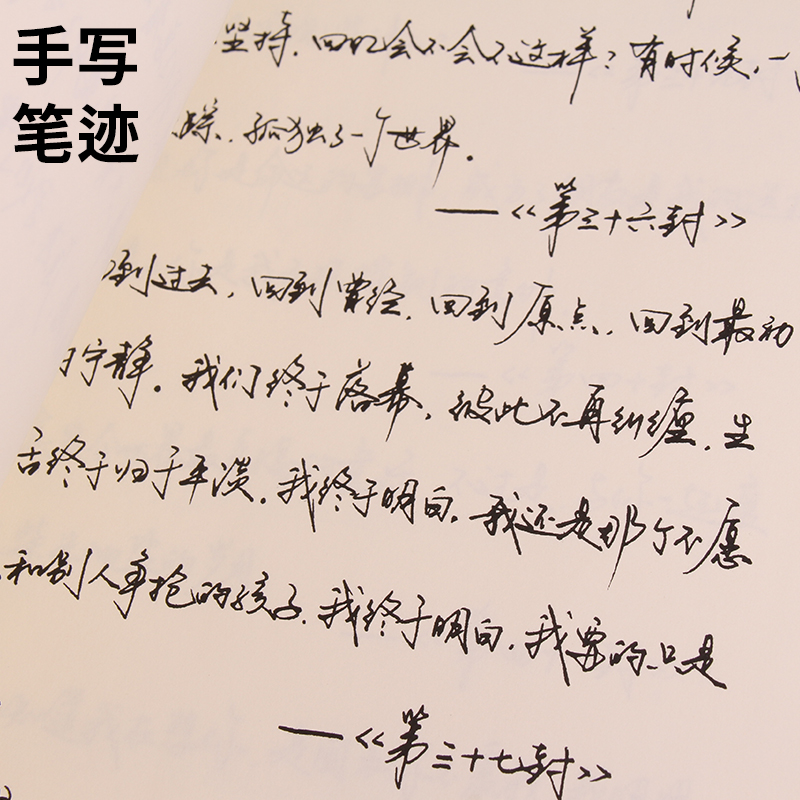 手写
笔迹
坚持，回忆会不会不这样？有时候，一
踪，孤独了一个世界。
——《第三十六封》
到过去，回到曾经，回到原点，回到最初
宁静。我们终于落幕，彼此不再纠缠，生
活终于归于平淡。我终于明白，我还是那个不愿
和别人争抢的孩子，我终于明白，我要的只是
——《第三十七封》